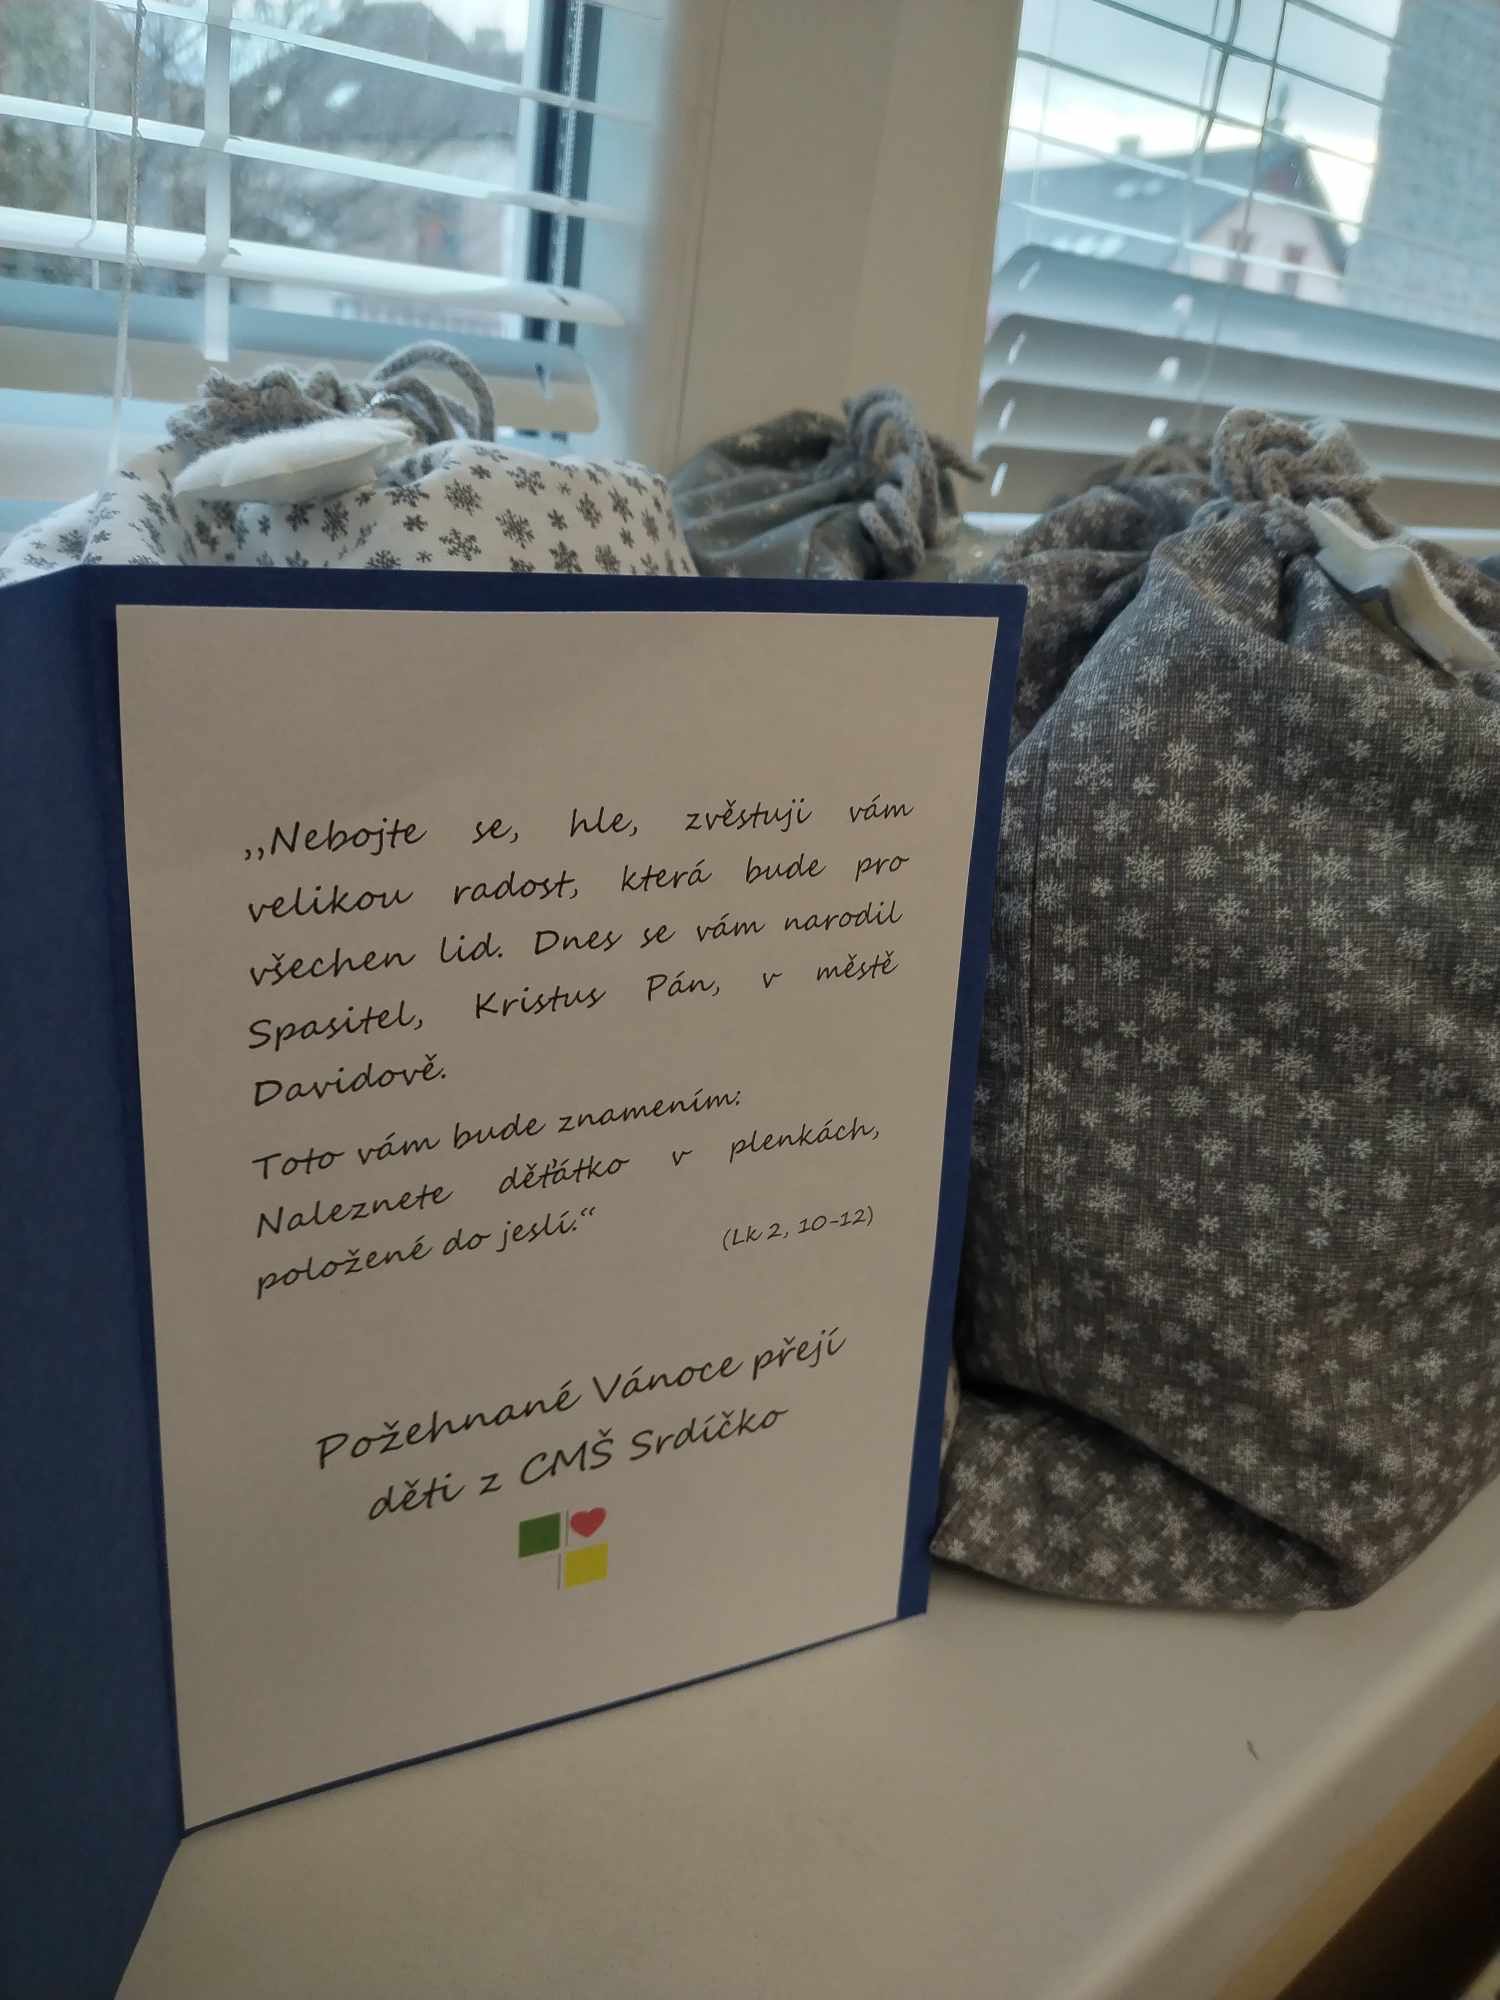 ,,Nebojte se, hle, zvěstuji vám
velikou radost, která bude pro
všechen lid. Dnes se vám narodil
Spasitel, Kristus Pán, v městě
Davidově.
Toto vám bude znamením:
Naleznete děťátko v plenkách,
položené do jeslí.“
(Lk 2, 10-12)
Požehnané Vánoce přejí
děti z CMŠ Srdíčko